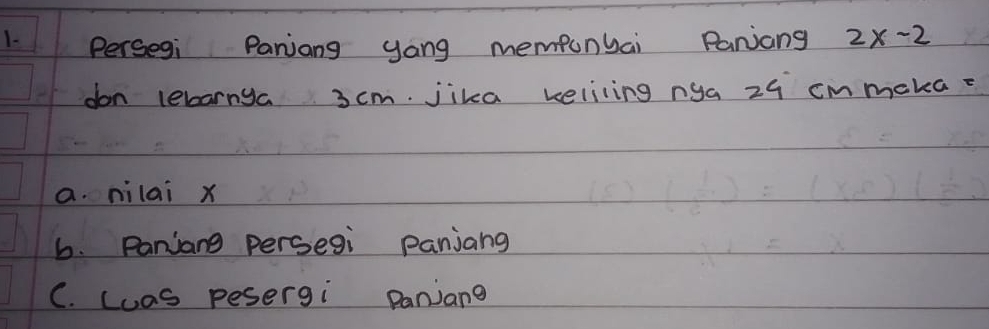 1. Persegi Panjang yang mempunyai Panjang 2x-2
dan lebarnya 3 cm. jika keliling nya 24 cm maka =
a. nilai x
b. Panjang persegi panjang
C. Luas pesergi panjang